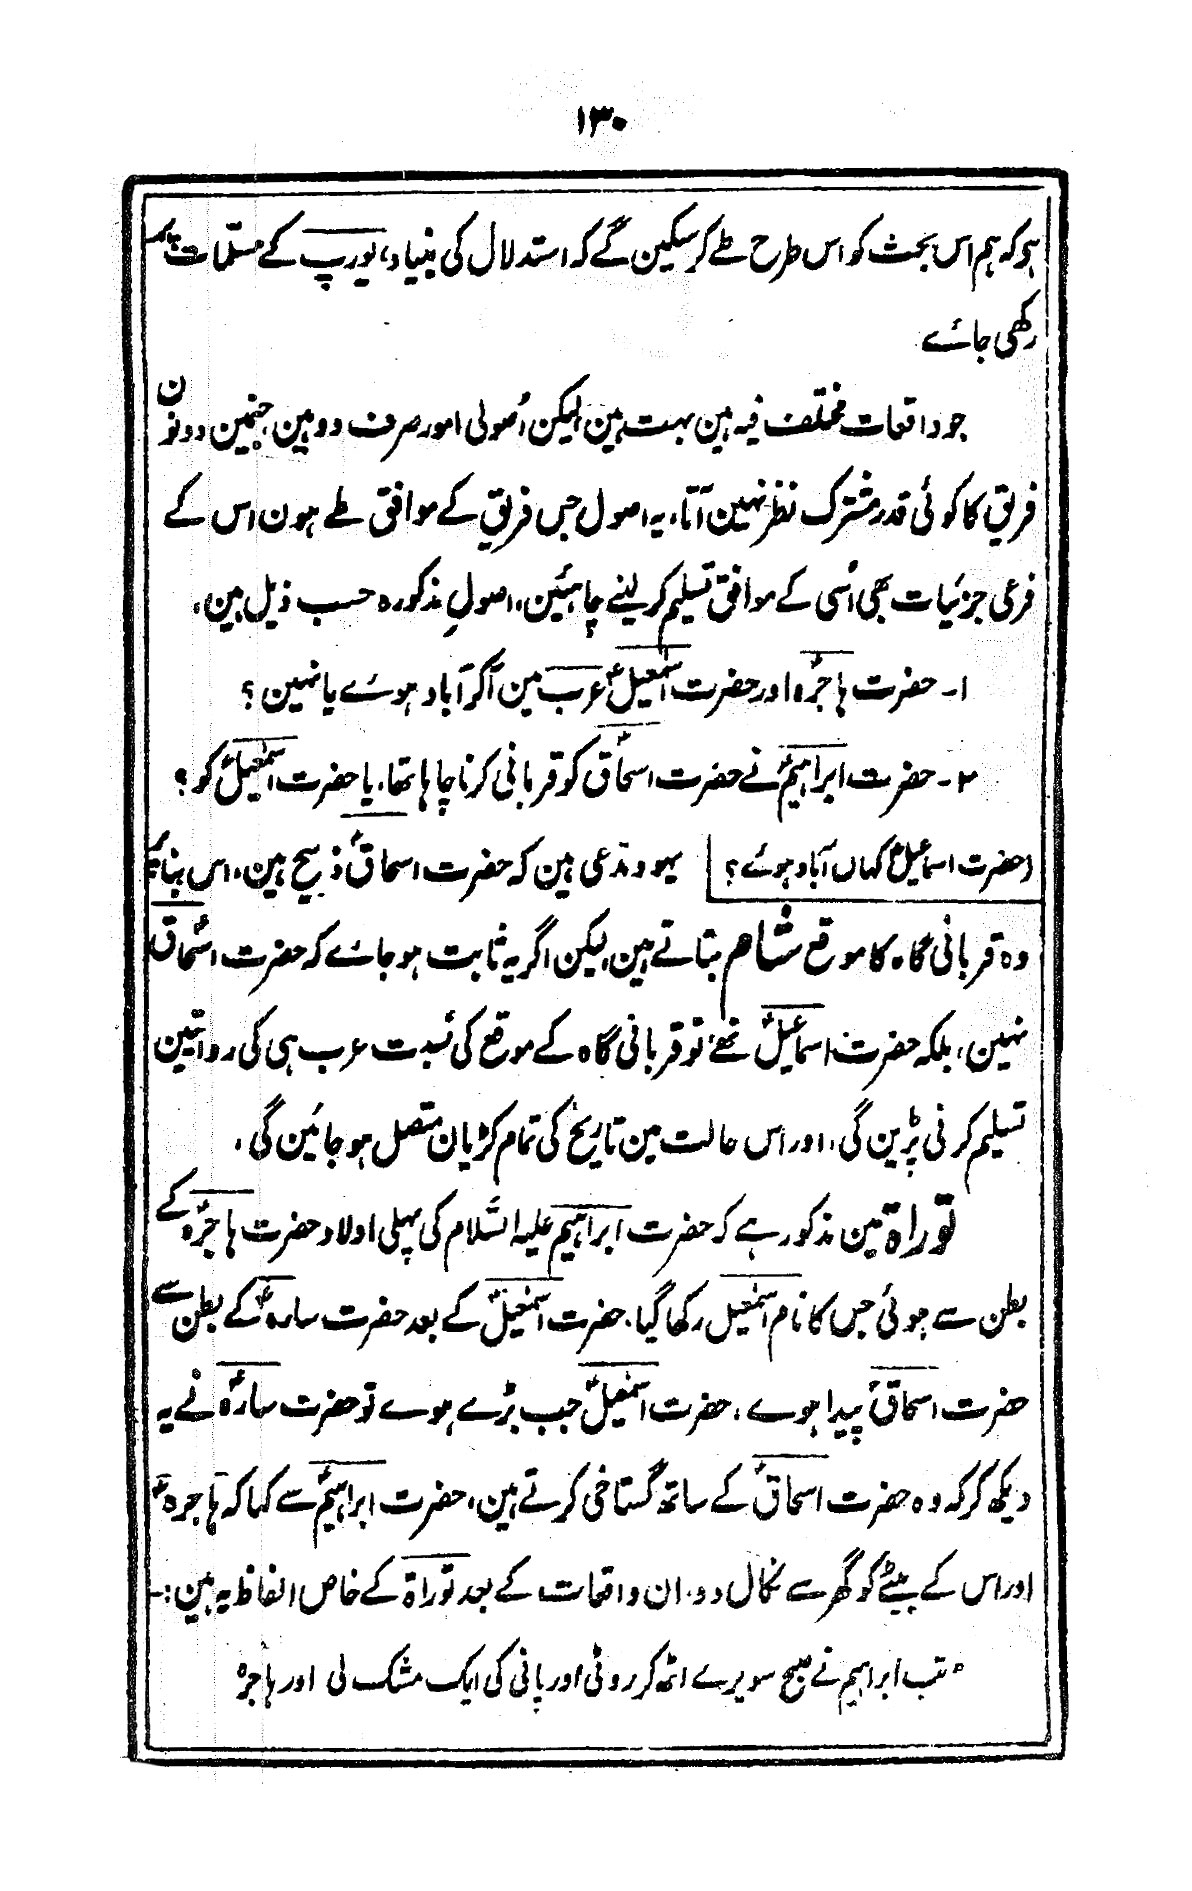 ۱۳۰
ہو کہ ہم اس بحث کو اس طرح طے کر سکین گے کہ استدلال کی بنیاد، یورپ کے مسلّمات پر
رکھی جائے
جو واقعات مختلف فیہ ہین بہت ہین، لیکن اُصولی امور صرف دو ہین، جنمین دونون
فریق کا کوئی قدر مشترک نظر نہین آتا، یہ اصول جس فریق کے موافق طے ہون اس کے
فرعی جزئیات بھی اُسی کے موافق تسلیم کر لینے چاہئین، اصولِ مذکورہ حسب ذیل ہین،
۱۔ حضرت ہاجرہؑ اور حضرت اسمٰعیلؑ عرب مین آکر آباد ہوئے یا نہین ؟
۲۔ حضرت ابراہیمؑ نے حضرت اسحاقؑ کو قربانی کرنا چاہا تھا، یا حضرت اسمٰعیلؑ کو ؟
(حضرت اسماعیلؑ کہاں آباد ہوئے ؟ یہود مدعی ہین کہ حضرت اسحاقؑ ذبیح ہین، اس بنا پر
وہ قربانی گاہ کا موقع شام بتاتے ہین، لیکن اگر یہ ثابت ہو جائے کہ حضرت اسحاقؑ
نہین، بلکہ حضرت اسماعیلؑ تھے، تو قربانی گاہ کے موقع کی نسبت عرب ہی کی روایتین
تسلیم کرنی پڑین گی، اور اس حالت مین تاریخ کی تمام کڑیان متصل ہو جائین گی،
توراۃ مین مذکور ہے کہ حضرت ابراہیم علیہ السّلام کی پہلی اولاد حضرت ہاجرہؑ کے
بطن سے ہوئی جس کا نام اسمٰعیل رکھا گیا، حضرت اسمٰعیلؑ کے بعد حضرت سارہؑ کے بطن سے
حضرت اسحاقؑ پیدا ہوے، حضرت اسمٰعیلؑ جب بڑے ہوے تو حضرت سارہؑ نے یہ
دیکھ کر کہ وہ حضرت اسحاقؑ کے ساتھ گستاخی کرتے ہین، حضرت ابراہیمؑ سے کہا کہ ہاجرہؑ
اور اس کے بیٹے کو گھر سے نکال دو، ان واقعات کے بعد توراۃ کے خاص الفاظ یہ ہین :-
"تب ابراہیم نے صبح سویرے اٹھ کر روٹی اور پانی کی ایک مشک لی اور ہاجرہ